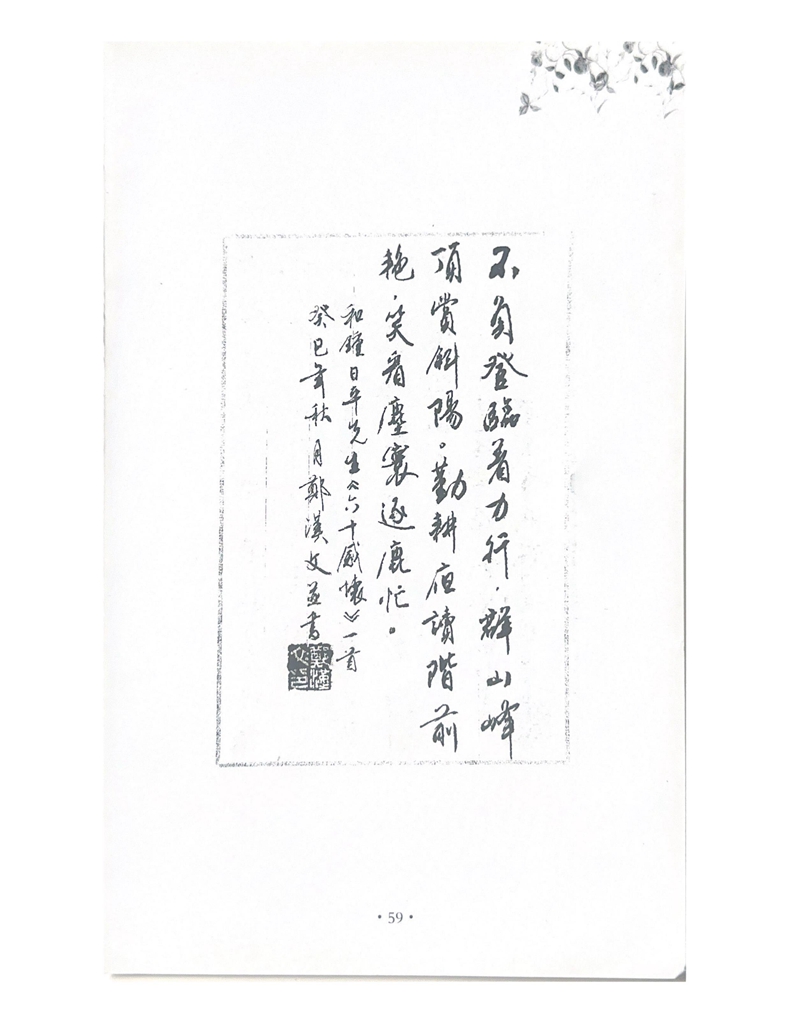 不負登臨着力行，群山峰
頂賞斜陽。勤耕夜讀階前
艳，笑看塵寰逐鹿忙。
和鐘日平先生《六十感懷》一首
癸巳年秋月鄭漢文並書
鄭漢
文印
• 59 •